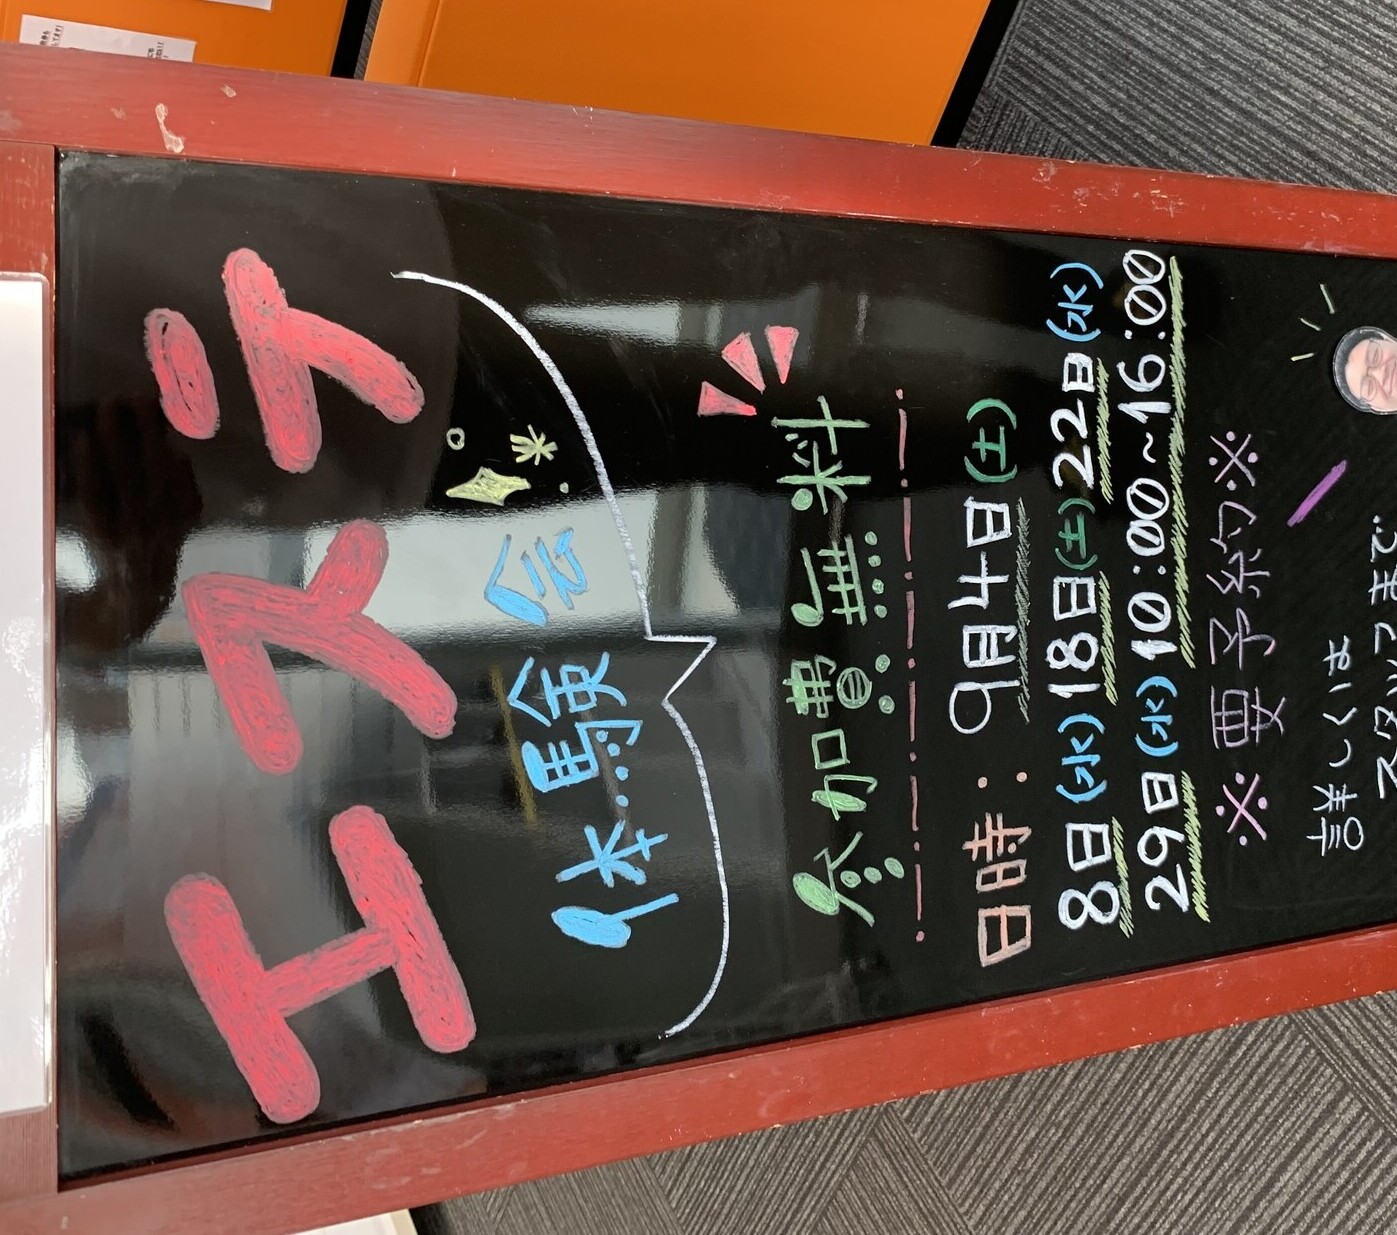 エステ
体験会
参加費無料
日時：9月4日(土)
8日(水)18日(土)22日(水)
29日(水)10:00~16:00
※要予約※
詳しくは
スタッフまで